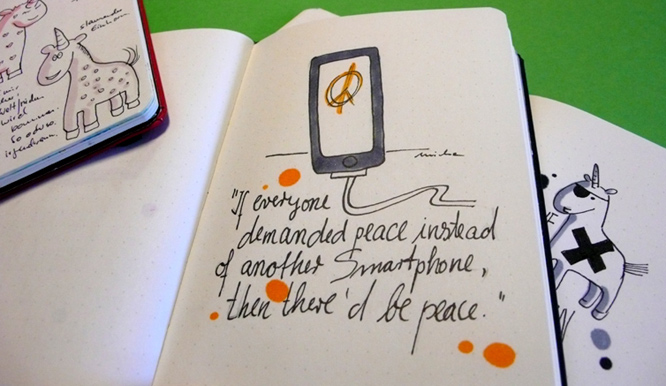 "If everyone
demanded peace instead
of another Smartphone,
then there'd be peace."